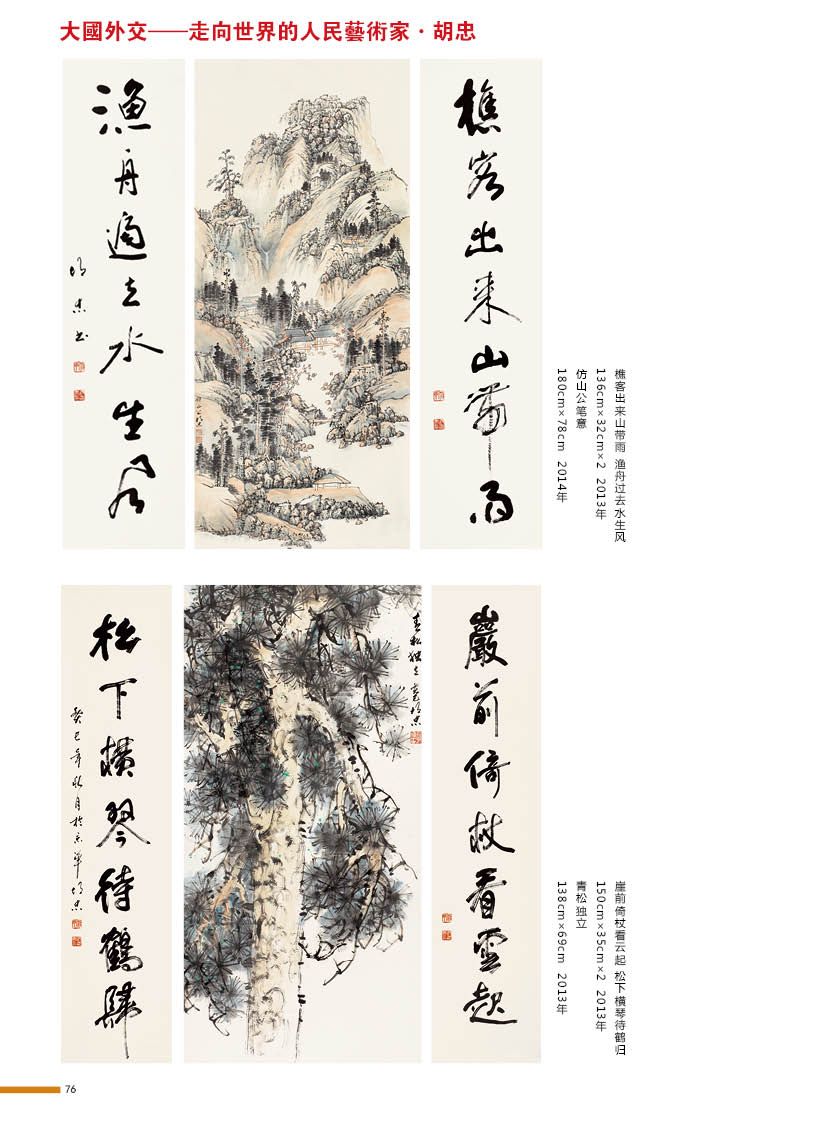 大國外交——走向世界的人民藝術家·胡忠
樵客出来山帶雨
漁舟過去水生風
胡忠书
樵客出来山带雨 渔舟过去水生风
136cm×32cm×2 2013年
仿山公笔意
180cm×78cm 2014年
巖前倚杖看雲起
青松独立
胡忠
松下横琴待鶴歸
癸巳年秋月於京華胡忠
崖前倚杖看云起 松下横琴待鹤归
150cm×35cm×2 2013年
青松独立
138cm×69cm 2013年
76